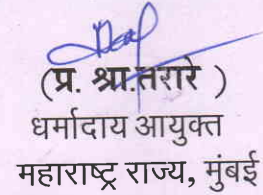 (प्र. श्रा.तरारे )
धर्मादाय आयुक्त
महाराष्ट्र राज्य, मुंबई